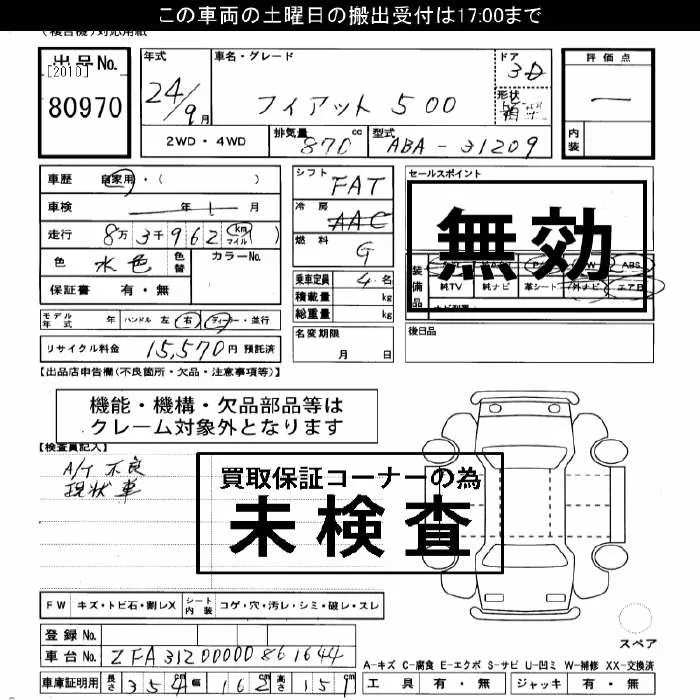 この車両の土曜日の搬出受付は17:00まで
(複合機)対応用紙
出品No.
[2010]
80970
年式
24/9月
車名・グレード
フィアット 500
ドア
3D
形状
評価点
一
内装
2WD・4WD
排気量
870cc
型式
ABA-31209
車歴 自家用・( )
車検 年 月
走行 8万3千962 km マイル )
色 水色 色替 カラーNo.
保証書 有・無
シフト FAT
冷房 AAC
燃料 G
乗車定員 4名
積載量 kg
総重量 kg
名変期限
月 日
セールスポイント
無効
装備品
ABS
純TV 純ナビ 革シート 外ナビ エアB
後日品
モデル年式 年 ハンドル 左 右 ディーラー・並行
リサイクル料金 15,570円 預託済
【出品店申告欄(不良箇所・欠品・注意事項等)】
機能・機構・欠品部品等は
クレーム対象外となります
【検査員記入】
A/T 不良
現状車
買取保証コーナーの為
未検査
FW キズ・トビ石・割レX シート内装 コゲ・穴・汚レ・シミ・破レ・スレ
登録No.
車台No. ZFA31200000861644
車庫証明用 長さ 354 幅 162 高さ 151
スペア
A-キズ C-腐食 E-エクボ S-サビ U-凹ミ W-補修 XX-交換済
工具 有・無 ジャッキ 有・無